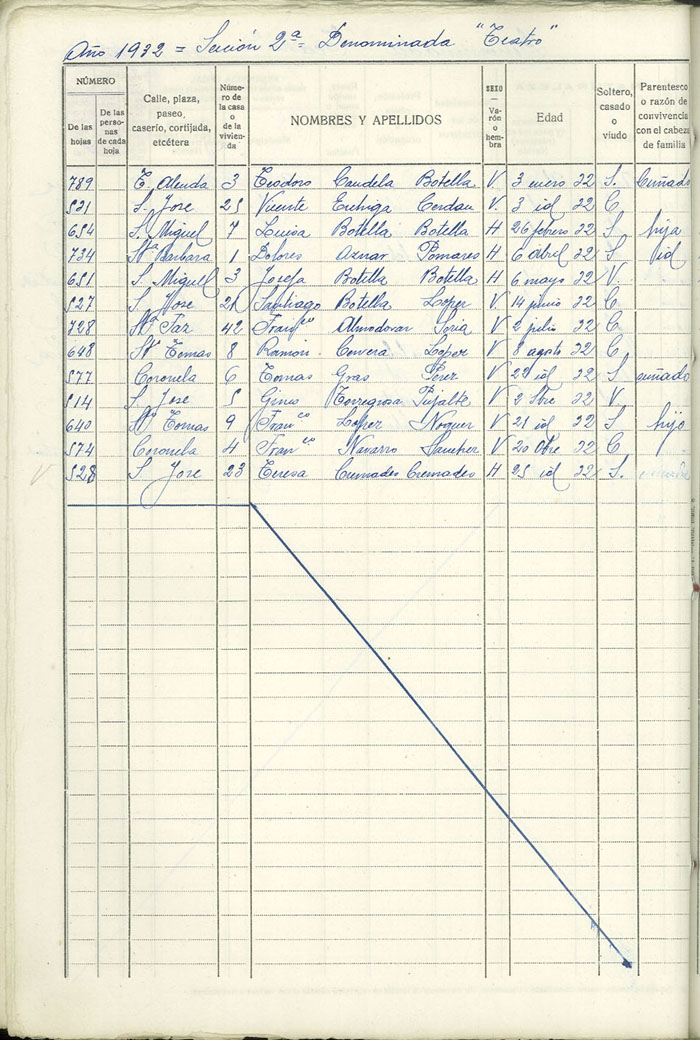 Año 1932 = Sección 2ª = Denominada "Teatro"
NÚMERO
De las hojas
De las personas de cada hoja
Calle, plaza, paseo, caserío, cortijada, etcétera
Número de la casa o de la vivienda
NOMBRES Y APELLIDOS
SEXO — Varón o hembra
Edad
Soltero, casado o viudo
Parentesco o razón de convivencia con el cabeza de familia
789 E. Alenda 3 Teodoro Candela Botella V. 3 enero 22 S. Cuñado
521 S. Jose 25 Vicente Cerdan V. 3 id 22 C
654 S. Miguel 7 Luisa Botella Botella H 26 febrero 22 S hija
734 Stª Barbara 1 Dolores Aznar Pomares H 6 abril 22 S id
651 S. Miguel 3 Josefa Botella Botella H 6 mayo 22 V.
527 S. Jose 21 Santiago Botella Lopez V 14 junio 22 C
728 Stª Paz 42 Franᶜᵒ Almodovar Soria V 2 julio 22 C
648 Sᵗᵒ Tomas 8 Ramón Cervera Lopez V 8 agosto 22 C
577 Coronela 6 Tomas Gras Perez V 29 id 22 S cuñado
514 S. Jose 5 Gines Torregrosa Pujalte V 2 22 V.
640 Sᵗᵒ Tomas 9 Franᶜᵒ Lopez Noguer V 21 id 22 S hijo
574 Coronela 4 Franᶜᵒ Navarro Sanchez V 20 Obre 22 C
528 S Jose 23 Teresa Cremades Cremades H 25 id 22 S.